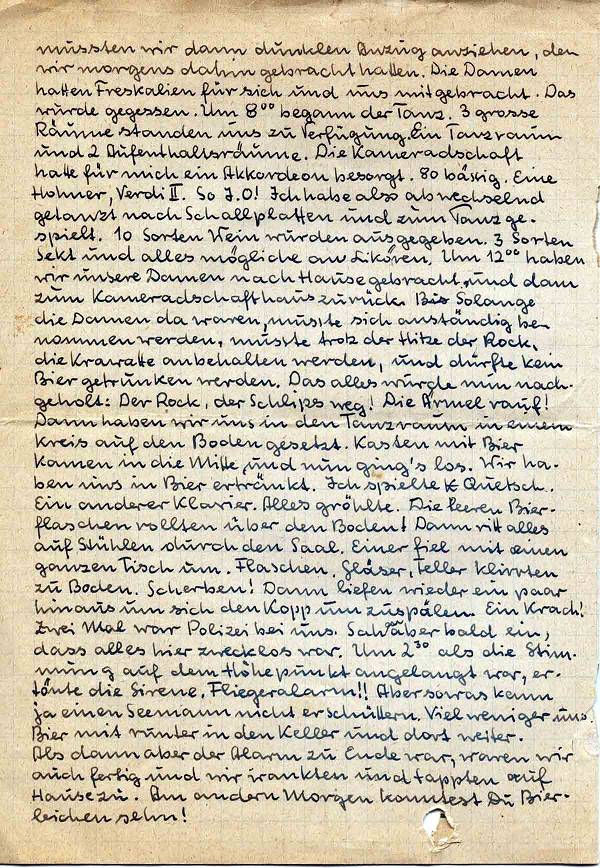 mussten wir dann dunklen Anzug anziehen, den
wir morgens dahin gebracht hatten. Die Damen
hatten Freskalien für sich und uns mitgebracht. Das
wurde gegessen. Um 8⁰⁰ begann der Tanz. 3 grosse
Räume standen uns zu Verfügung. Ein Tanzraum
und 2 Aufenthaltsräume. Die Kameradschaft
hatte für mich ein Akkordeon besorgt. 80 bässig. Eine
Hohner, Verdi II. So I.O! Ich habe also abwechselnd
getanzt nach Schallplatten und zum Tanz ge-
spielt. 10 Sorten Wein wurden ausgegeben. 3 Sorten
Sekt und alles mögliche an Likören. Um 12⁰⁰ haben
wir unsere Damen nach Hause gebracht, und dann
zum Kameradschafthaus zurück. Solange
die Damen da waren, musste sich anständig be-
nommen werden, musste trotz der Hitze der Rock,
die Krawatte anbehalten werden, und durfte kein
Bier getrunken werden. Das alles wurde nun nach-
geholt: Der Rock, der Schlips weg! Die Ärmel rauf!
Dann haben wir uns in den Tanzraum in einem
Kreis auf den Boden gesetzt. Kasten mit Bier
kamen in die Mitte, und nun ging's los. Wir ha-
ben uns in Bier ertränkt. Ich spielte Quetsch.
Ein anderer Klavier. Alles gröhlte. Die leeren Bier-
flaschen rollten über den Boden! Dann ritt alles
auf Stühlen durch den Saal. Einer fiel mit einen
ganzen Tisch um. Flaschen, Gläser, Teller klirrten
zu Boden. Scherben! Dann liefen wieder ein paar
hinaus um sich den Kopp umzuspülen. Ein Krach!
Zwei Mal war Polizei bei uns. Sah aber bald ein,
dass alles hier zwecklos war. Um 2³⁰ als die Stim-
mung auf dem Höhepunkt angelangt war, er-
tönte die Sirene. Fliegeralarm!! Aber sowas kann
ja einen Seemann nicht erschüttern. Viel weniger uns.
Bier mit runter in den Keller und dort weiter.
Als dann aber der Alarm zu Ende war, waren wir
auch fertig und wir wankten und tappten auf
Hause zu. Am andern Morgen konntest Du Bier-
leichen sehn!